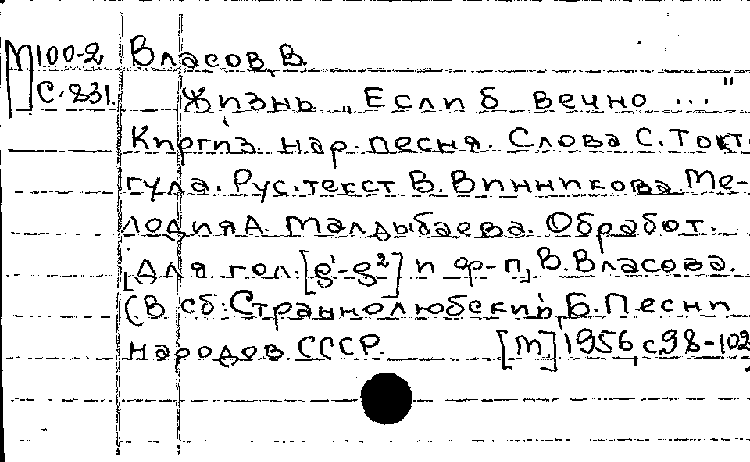 М100-2 Власов, В.
С.831. Жизнь „Если б вечно ..."
Киргиз. нар. песня. Слова С. Токт-
гула. Рус. текст В. Винникова. Ме-
лодия А. Малдыбаева. Обработ.
[для гол. [g¹-g²] и ф-п, В. Власова.
(В сб: Страннолюбский, Б. Песни
народов СССР. [М.] 1956, с.98-102